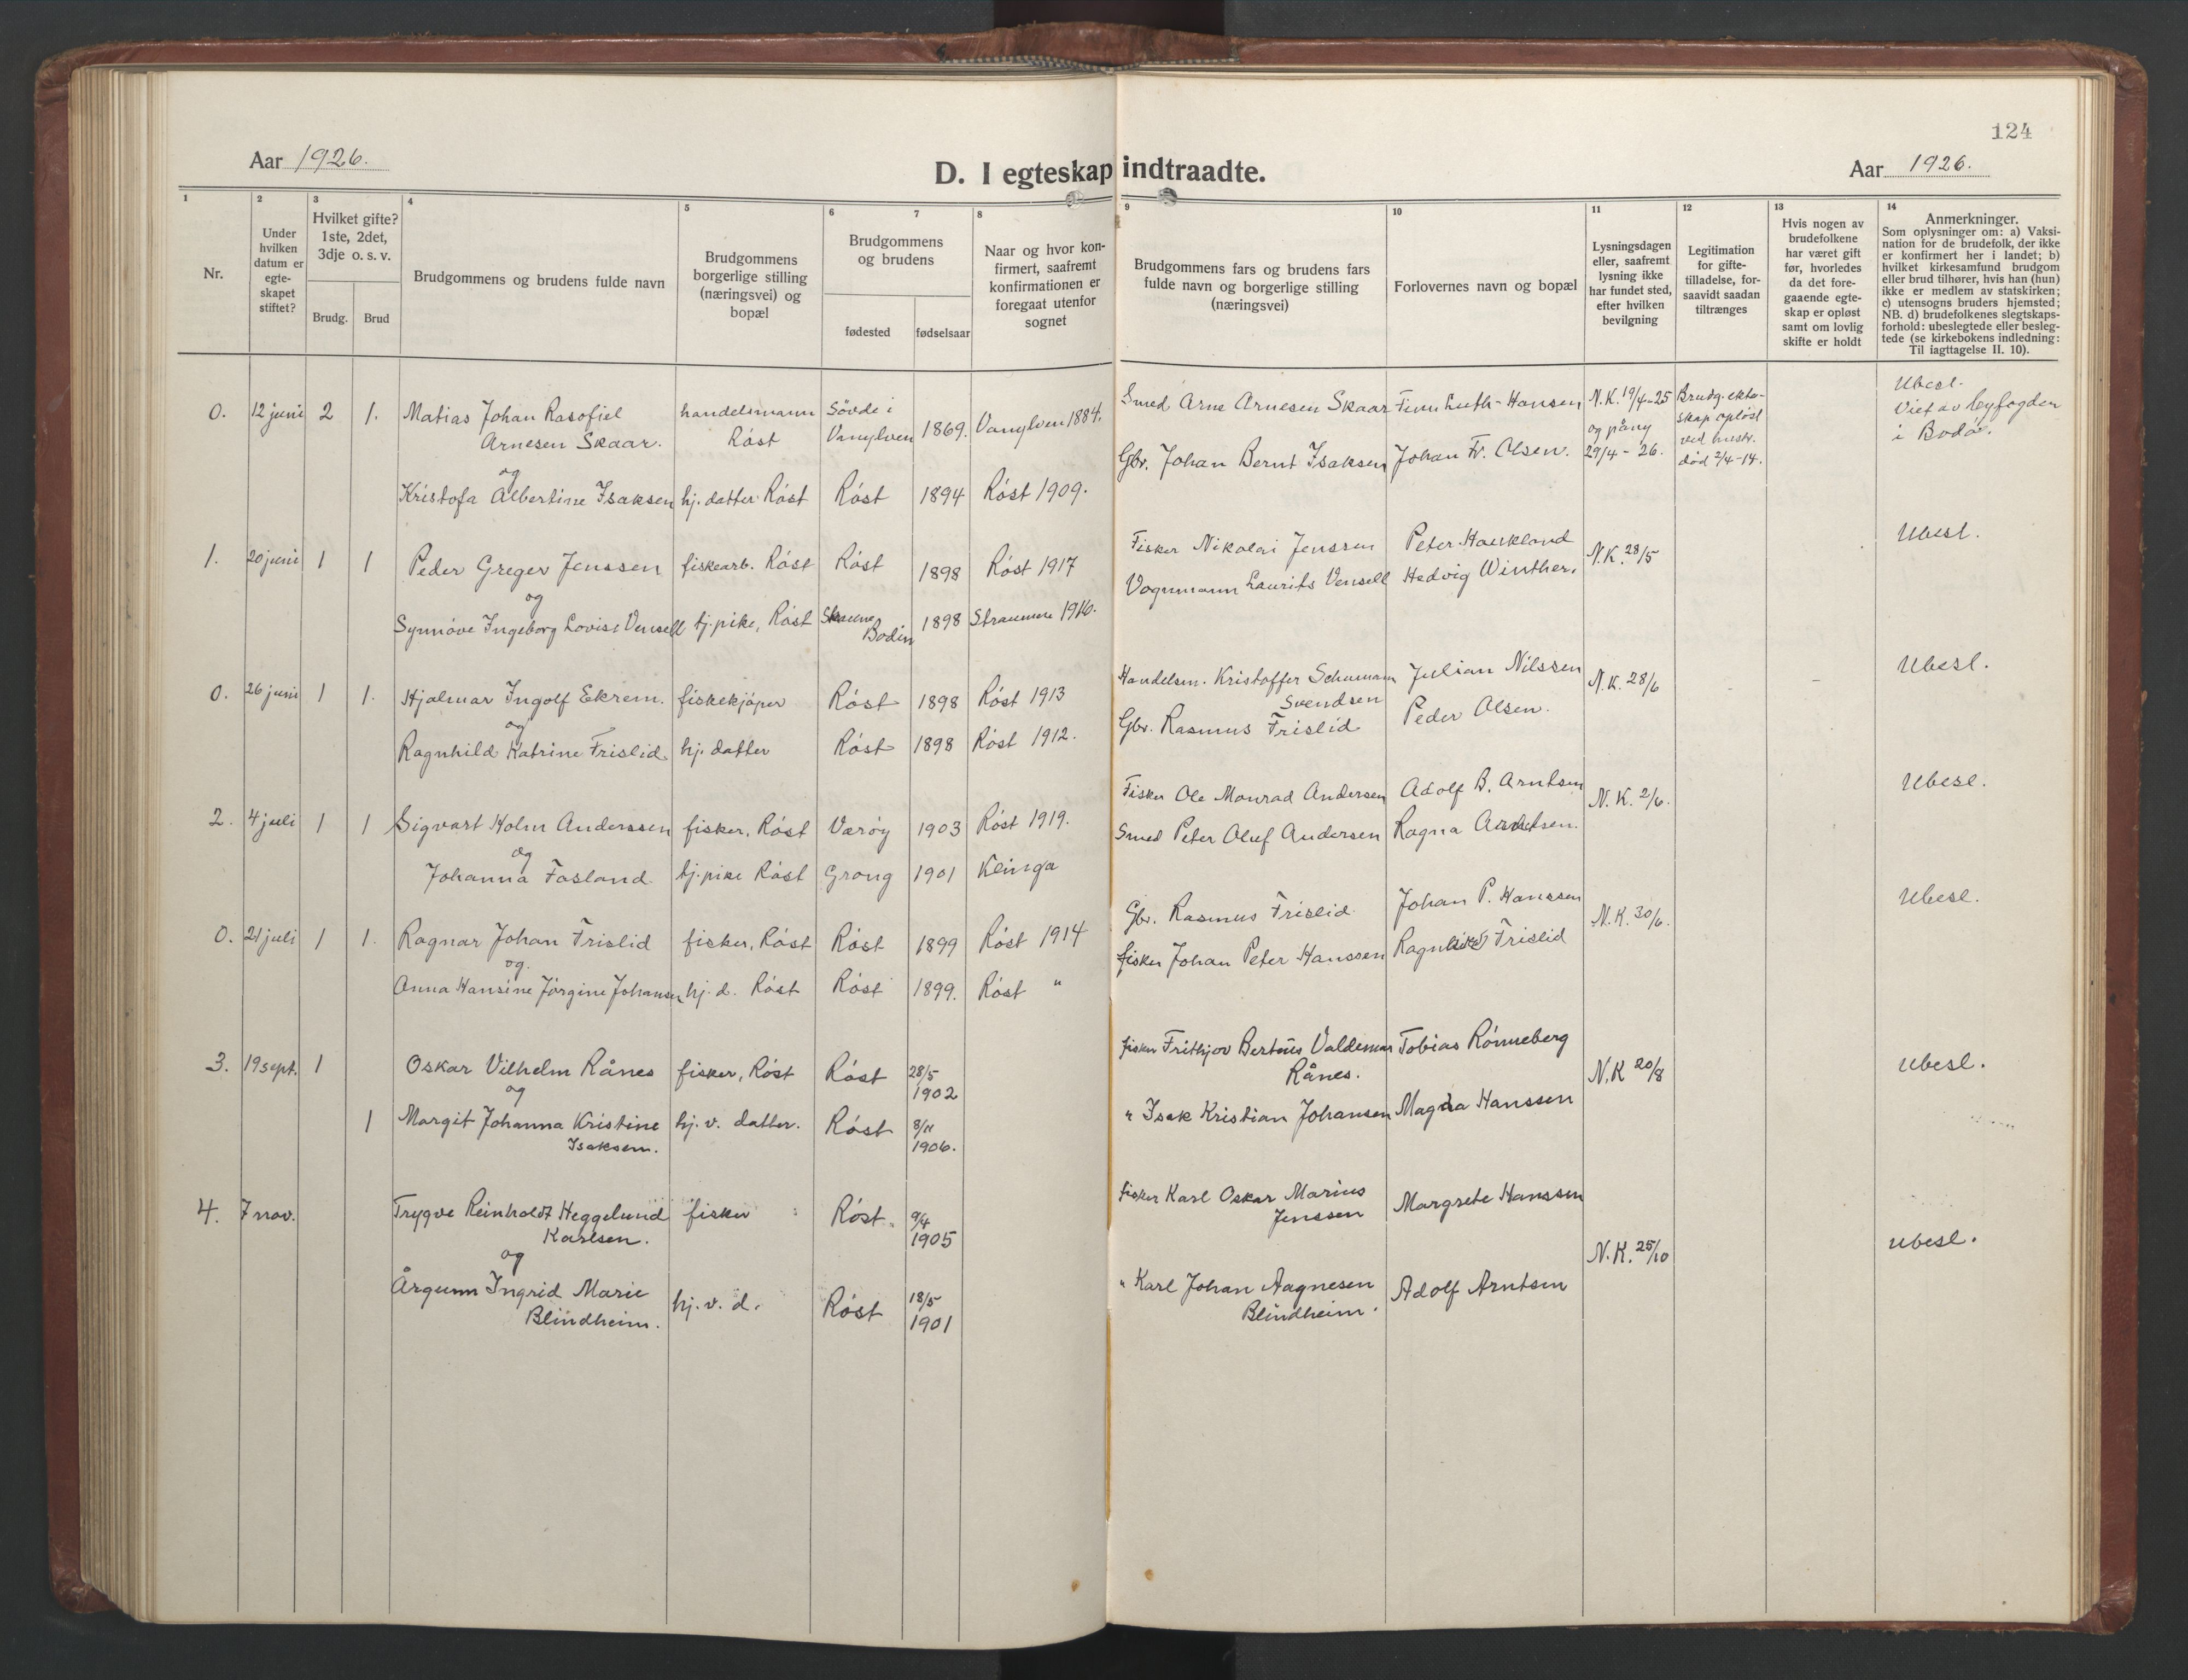 124
Aar 1926.
D. I egteskap indtraadte.
Aar 1926.
1
2
3
4
5
6
7
8
9
10
11
12
13
14
Nr.
Under
hvilken
datum er
egte-
skapet
stiftet?
Hvilket gifte?
1ste, 2det,
3dje o. s. v.
Brudg.
Brud
Brudgommens og brudens fulde navn
Brudgommens
borgerlige stilling
(næringsvei) og
bopæl
Brudgommens
og brudens
fødested
fødselsaar
Naar og hvor kon-
firmert, saafremt
konfirmationen er
foregaat utenfor
sognet
Brudgommens fars og brudens fars
fulde navn og borgerlige stilling
(næringsvei)
Forlovernes navn og bopæl
Lysningsdagen
eller, saafremt
lysning ikke
har fundet sted,
efter hvilken
bevilgning
Legitimation
for gifte-
tilladelse, for-
saavidt saadan
tiltrænges
Hvis nogen av
brudefolkene
har været gift
før, hvorledes
da det fore-
gaaende egte-
skap er opløst
samt om lovlig
skifte er holdt
Anmerkninger.
Som oplysninger om: a) Vaksi-
nation for de brudefolk, der ikke
er konfirmert her i landet; b)
hvilket kirkesamfund brudgom
eller brud tilhører, hvis han (hun)
ikke er medlem av statskirken;
c) utensogns bruders hjemsted;
NB. d) brudefolkenes slegtskaps-
forhold: ubeslegtede eller besleg-
tede (se kirkebokens indledning:
Til iagttagelse II. 10).
0. 12 juni 2 1. Matias Johan Rasofiel
Arnesen Skaar.
og
Kristofa Albertine Isaksen
handelsmann
Røst
hj. datter Røst
Søvde i
Vanylven
Røst
1869.
1894
Vanylven 1884.
Røst 1909.
Smed Arne Arnesen Skaar
Gbr. Johan Bernt Isaksen
Finn Luth-Hansen
Johan Fr. Olsen.
N.K. 19/4-25
og påny
29/4-26.
Brudg. ekte-
skap opløst
ved hustr.
død 2/4-14.
Ubesl.
Viet av byfogden
i Bodø.
1. 20 juni 1 1 Peder Greger Jenssen
og
Synnøve Ingeborg Lovise Vensell
fiskearb. Røst
tj. pike, Røst
Røst
Bodin
1898
1898
Røst 1917
Straumen 1916.
Fisker Nikolai Jenssen
Vognmann Laurits Vensell
Peter Haukland
Hedvig Winther.
N.K. 28/5
Ubesl.
0. 26 juni 1 1. Hjalmar Ingolf Ekrem.
og
Ragnhild Katrine Frislid.
fiskekjøper
hj. datter
Røst
Røst
1898
1898
Røst 1913
Røst 1912.
Handelsm. Kristoffer Schumann
Svendsen
Gbr. Rasmus Frislid
Julian Nilssen
Peder Olsen.
N.K. 28/6
Ubesl.
2. 4 juli 1 1 Sigvart Holm Anderssen
og
Johanna Fosland.
fisker, Røst
tj. pike Røst
Værøy
Grong
1903
1901
Røst 1919.
Klinga
Fisker Ole Monrad Andersen
Smed Peter Oluf Andersen
Adolf B. Arntsen
Ragna Arntsen.
N.K. 2/6.
Ubesl.
0. 21 juli 1 1. Ragnar Johan Frislid
og
Anna Hansine Jørgine Johansen
fisker, Røst
hj. d. Røst
Røst
Røst
1899
1899.
Røst 1914
Røst "
Gbr. Rasmus Frislid.
fisker Johan Peter Hanssen
Johan P. Hanssen
Ragnhild Frislid
N.K. 30/6.
Ubesl.
3. 19 sept. 1 Oskar Vilhelm Rånes
og
1 Margit Johanna Kristine
Isaksen.
fisker, Røst
hj. v. datter.
Røst
Røst
28/5
1902
8/11
1906.
fisker Frithjov Bertéus Valdemar
Rånes.
" Isak Kristian Johansen
Tobias Rønneberg
Magna Hanssen
N.K 20/8
Ubesl.
4. 7 nov. Trygve Reinholdt Heggelund
Karlsen.
og
Årgunn Ingrid Marie
Blindheim.
fisker
hj. v. d.
Røst.
Røst
9/4
1905
18/5
1901
fisker Karl Oskar Marius
Jenssen
" Karl Johan Aagnesen
Blindheim.
Margrete Hanssen
Adolf Arntsen
N.K. 25/10
ubesl.